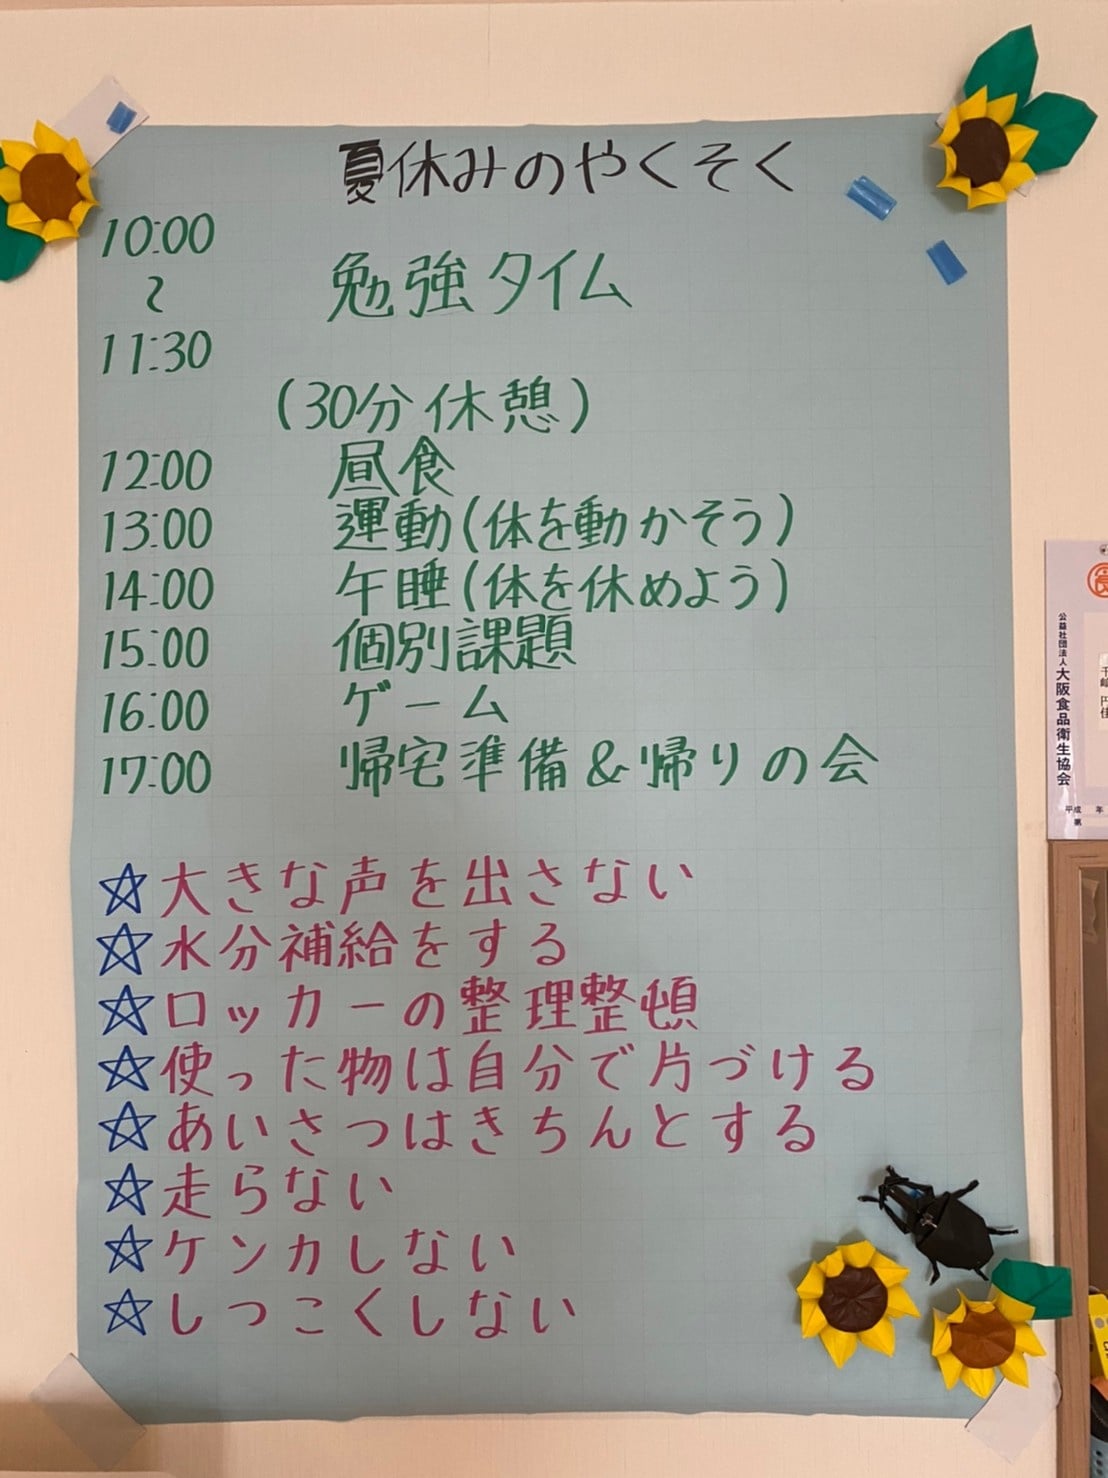 夏休みのやくそく
10:00
〜 勉強タイム
11:30
(30分休憩)
12:00 昼食
13:00 運動(体を動かそう)
14:00 午睡(体を休めよう)
15:00 個別課題
16:00 ゲーム
17:00 帰宅準備&帰りの会
☆大きな声を出さない
☆水分補給をする
☆ロッカーの整理整頓
☆使った物は自分で片づける
☆あいさつはきちんとする
☆走らない
☆ケンカしない
☆しつこくしない
公益社団法人大阪食品衛生協会
平成 年